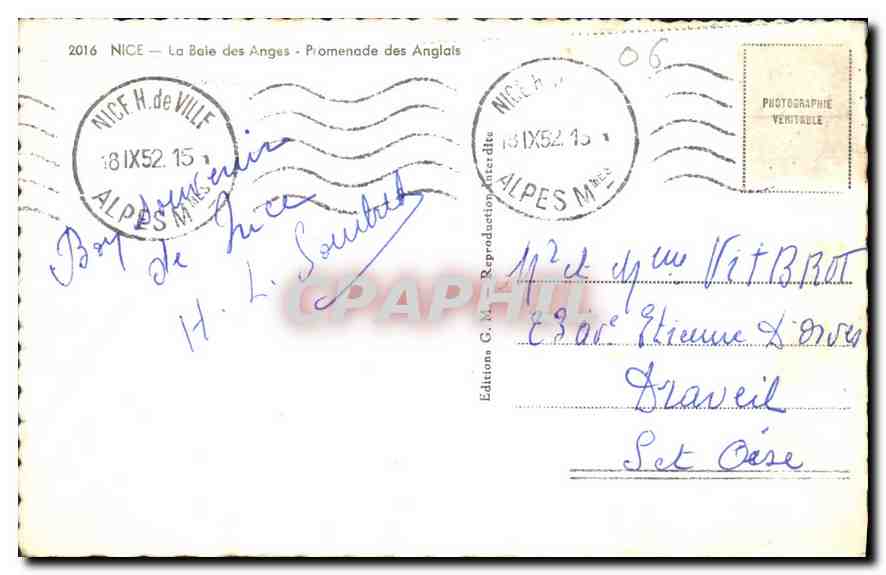 2016 NICE — La Baie des Anges - Promenade des Anglais
06
NICE H. de VILLE
18 IX 52. 15
ALPES Mmes
NICE H.
18 IX 52. 15
ALPES Mmes
PHOTOGRAPHIE
VÉRITABLE
Bon souvenir
de Nice
H. L.
Editions G. M. Reproduction Interdite
CPAPHIL
Mr et Mme VitBROT
Etienne D'Orves
Draveil
S et Oise